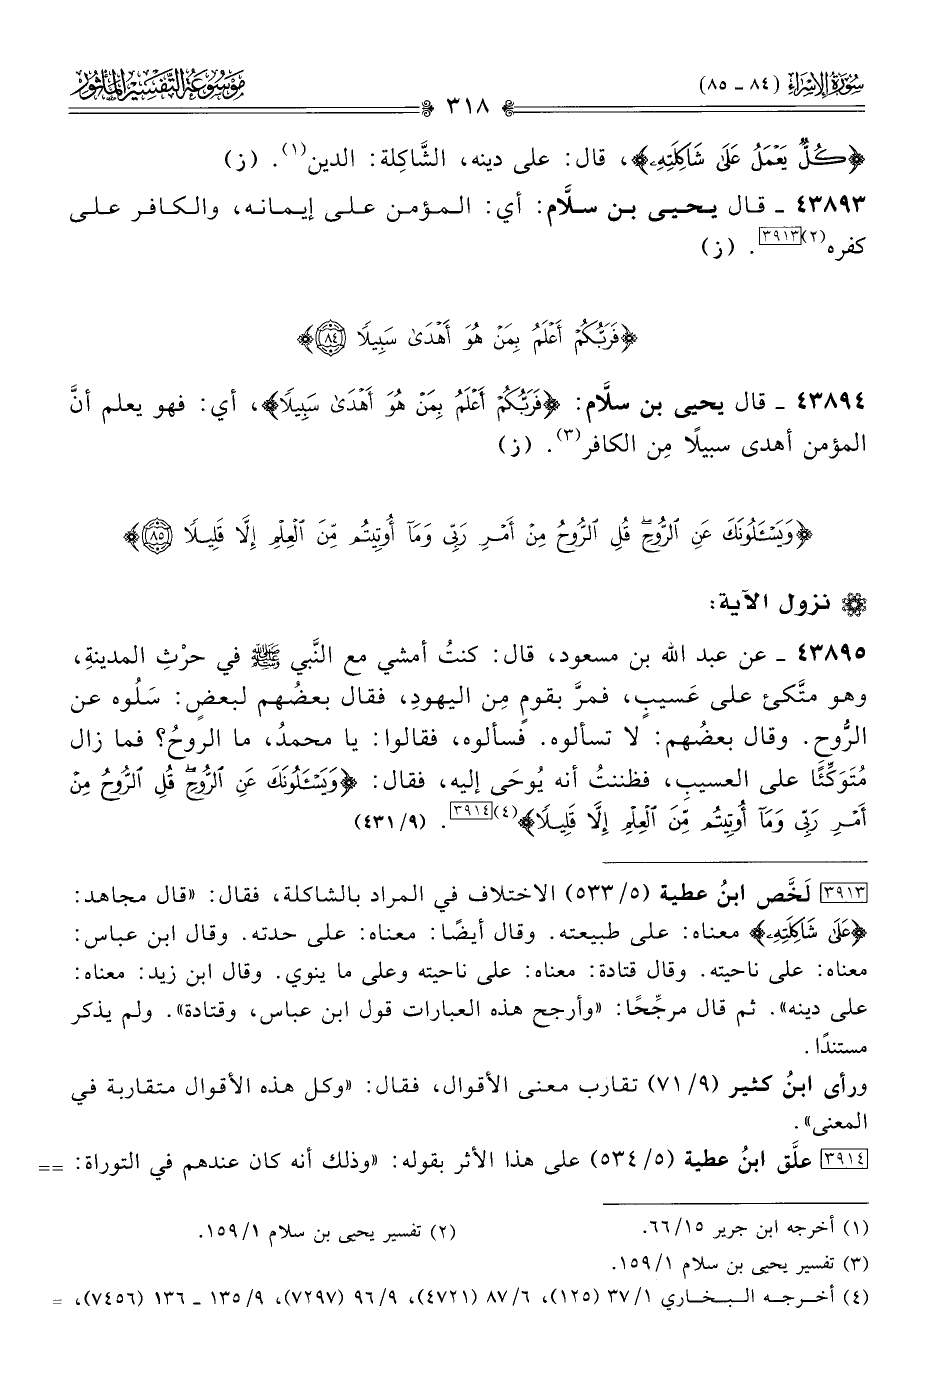 سُورَةُ الإِسْرَاءِ (٨٤ ـ ٨٥)
٣١٨
مَوْسُوعَة التَّفْسِيرِ المَأثُور
﴿كُلٌّ يَعْمَلُ عَلَىٰ شَاكِلَتِهِۦ﴾، قال: على دينه، الشَّاكِلة: الدين(١). (ز)
٤٣٨٩٣ ـ قال يحيى بن سلَّام: أي: المؤمن على إيمانه، والكافر على
كفره(٢)[٣٩١٣]. (ز)
﴿فَرَبُّكُمْ أَعْلَمُ بِمَنْ هُوَ أَهْدَىٰ سَبِيلًا ٨٤﴾
٤٣٨٩٤ ـ قال يحيى بن سلَّام: ﴿فَرَبُّكُمْ أَعْلَمُ بِمَنْ هُوَ أَهْدَىٰ سَبِيلًا﴾، أي: فهو يعلم أنَّ
المؤمن أهدى سبيلًا مِن الكافر(٣). (ز)
﴿وَيَسْـَٔلُونَكَ عَنِ ٱلرُّوحِ ۖ قُلِ ٱلرُّوحُ مِنْ أَمْرِ رَبِّى وَمَآ أُوتِيتُم مِّنَ ٱلْعِلْمِ إِلَّا قَلِيلًا ٨٥﴾
نزول الآية:
٤٣٨٩٥ ـ عن عبد الله بن مسعود، قال: كنتُ أمشي مع النَّبي ﷺ في حرْثِ المدينةِ،
وهو متَّكئ على عَسيبٍ، فمرَّ بقومٍ مِن اليهودِ، فقال بعضُهم لبعضٍ: سَلُوه عن
الرُّوح. وقال بعضُهم: لا تسألوه. فسألوه، فقالوا: يا محمدُ، ما الروحُ؟ فما زال
مُتَوَكِّئًا على العسيبِ، فظننتُ أنه يُوحَى إليه، فقال: ﴿وَيَسْـَٔلُونَكَ عَنِ ٱلرُّوحِ ۖ قُلِ ٱلرُّوحُ مِنْ
أَمْرِ رَبِّى وَمَآ أُوتِيتُم مِّنَ ٱلْعِلْمِ إِلَّا قَلِيلًا﴾(٤)[٣٩١٤]. (٤٣١/٩)
[٣٩١٣] لَخَّص ابنُ عطية (٥/ ٥٣٣) الاختلاف في المراد بالشاكلة، فقال: «قال مجاهد:
﴿عَلَىٰ شَاكِلَتِهِۦ﴾ معناه: على طبيعته. وقال أيضًا: معناه: على حدته. وقال ابن عباس:
معناه: على ناحيته. وقال قتادة: معناه: على ناحيته وعلى ما ينوي. وقال ابن زيد: معناه:
على دينه». ثم قال مرجِّحًا: «وأرجح هذه العبارات قول ابن عباس، وقتادة». ولم يذكر
مستندًا.
ورأى ابنُ كثير (٩/ ٧١) تقارب معنى الأقوال، فقال: «وكل هذه الأقوال متقاربة في
المعنى».
[٣٩١٤] علَّق ابنُ عطية (٥/ ٥٣٤) على هذا الأثر بقوله: «وذلك أنه كان عندهم في التوراة: ==
(١) أخرجه ابن جرير ١٥/ ٦٦.
(٢) تفسير يحيى بن سلام ١/ ١٥٩.
(٣) تفسير يحيى بن سلام ١/ ١٥٩.
(٤) أخرجه البخاري ١/ ٣٧ (١٢٥)، ٦/ ٨٧ (٤٧٢١)، ٩/ ٩٦ (٧٢٩٧)، ٩/ ١٣٥ ـ ١٣٦ (٧٤٥٦)، =